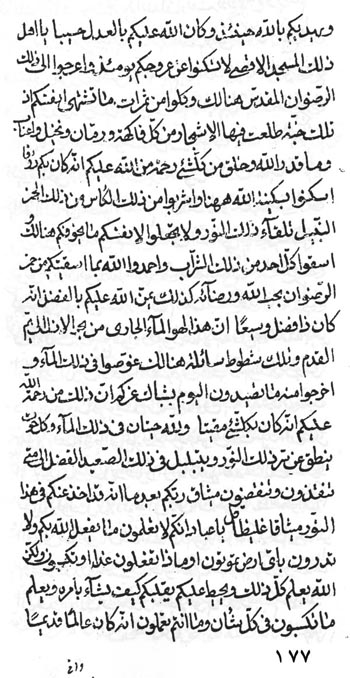 ويهديكم بالله حينئذ وكان الله عليكم بالعدل حسيبا يا اهل
ذلك المسجد الاقصى لا تسكنوا عن عروجكم يومئذ واعرجوا الى ذلك
الرضوان المقدس هنالك وكلوا من ثمرات ما تشتهوا انفسكم اذ
تلك جنة طلعت فيها الاشجار من كل فاكهة ورمان ونخل واعناب
وما قدر الله وخلق من كلشئ رحمة من الله عليكم انه كان بكم رؤفا
اسكنوا بسكينة الله ههنا واشربوا من ذلك الكاس ومن ذلك الخمر
النبيل تلقاء ذلك النور ولا تجعلوا لانفسكم ما يخوفكم هنالك و
اسقوا كل احد من ذلك الشراب واحمدوا الله بما اسقيتكم من خمر
الرضوان بحب الله ورضائه كذلك من الله عليكم بالفضل انه
كان ذا فضل وسيعا ان هذا لهو الماء الجارى من بحر الازلى ثم
القدم وتلك شطوط سائلة هنالك غوصوا فى ذلك الماء و
اخرجوا منه ما تصيدون اليوم بشباك عزكم ان ذلك من رحمة الله
عليكم انه كان بكلشئ مقيتا ولله حيتان فى ذلك الماء وكل حوت
ينطق عن سر ذلك النور ويتبلبل فى ذلك الصعيد الفضل الى متى
تفتنون وتنقضون ميثاق ربكم بعد ما الله قد اخذ عنكم فى هذا
النور ميثاقا غليظا قل يا عباد انكم لا تعلمون ما يفعل الله بكم ولا
تدرون باى ارض تموتون او ماذا تفعلون غدا او تكسبون ولكن
الله يعلم كل ذلك ويحيط عليكم يقلبكم كيف يشاء بامره ويعلم
ما تكسبون فى كل شان وما انتم تعملون انه كان عالما قديما
١٧٧